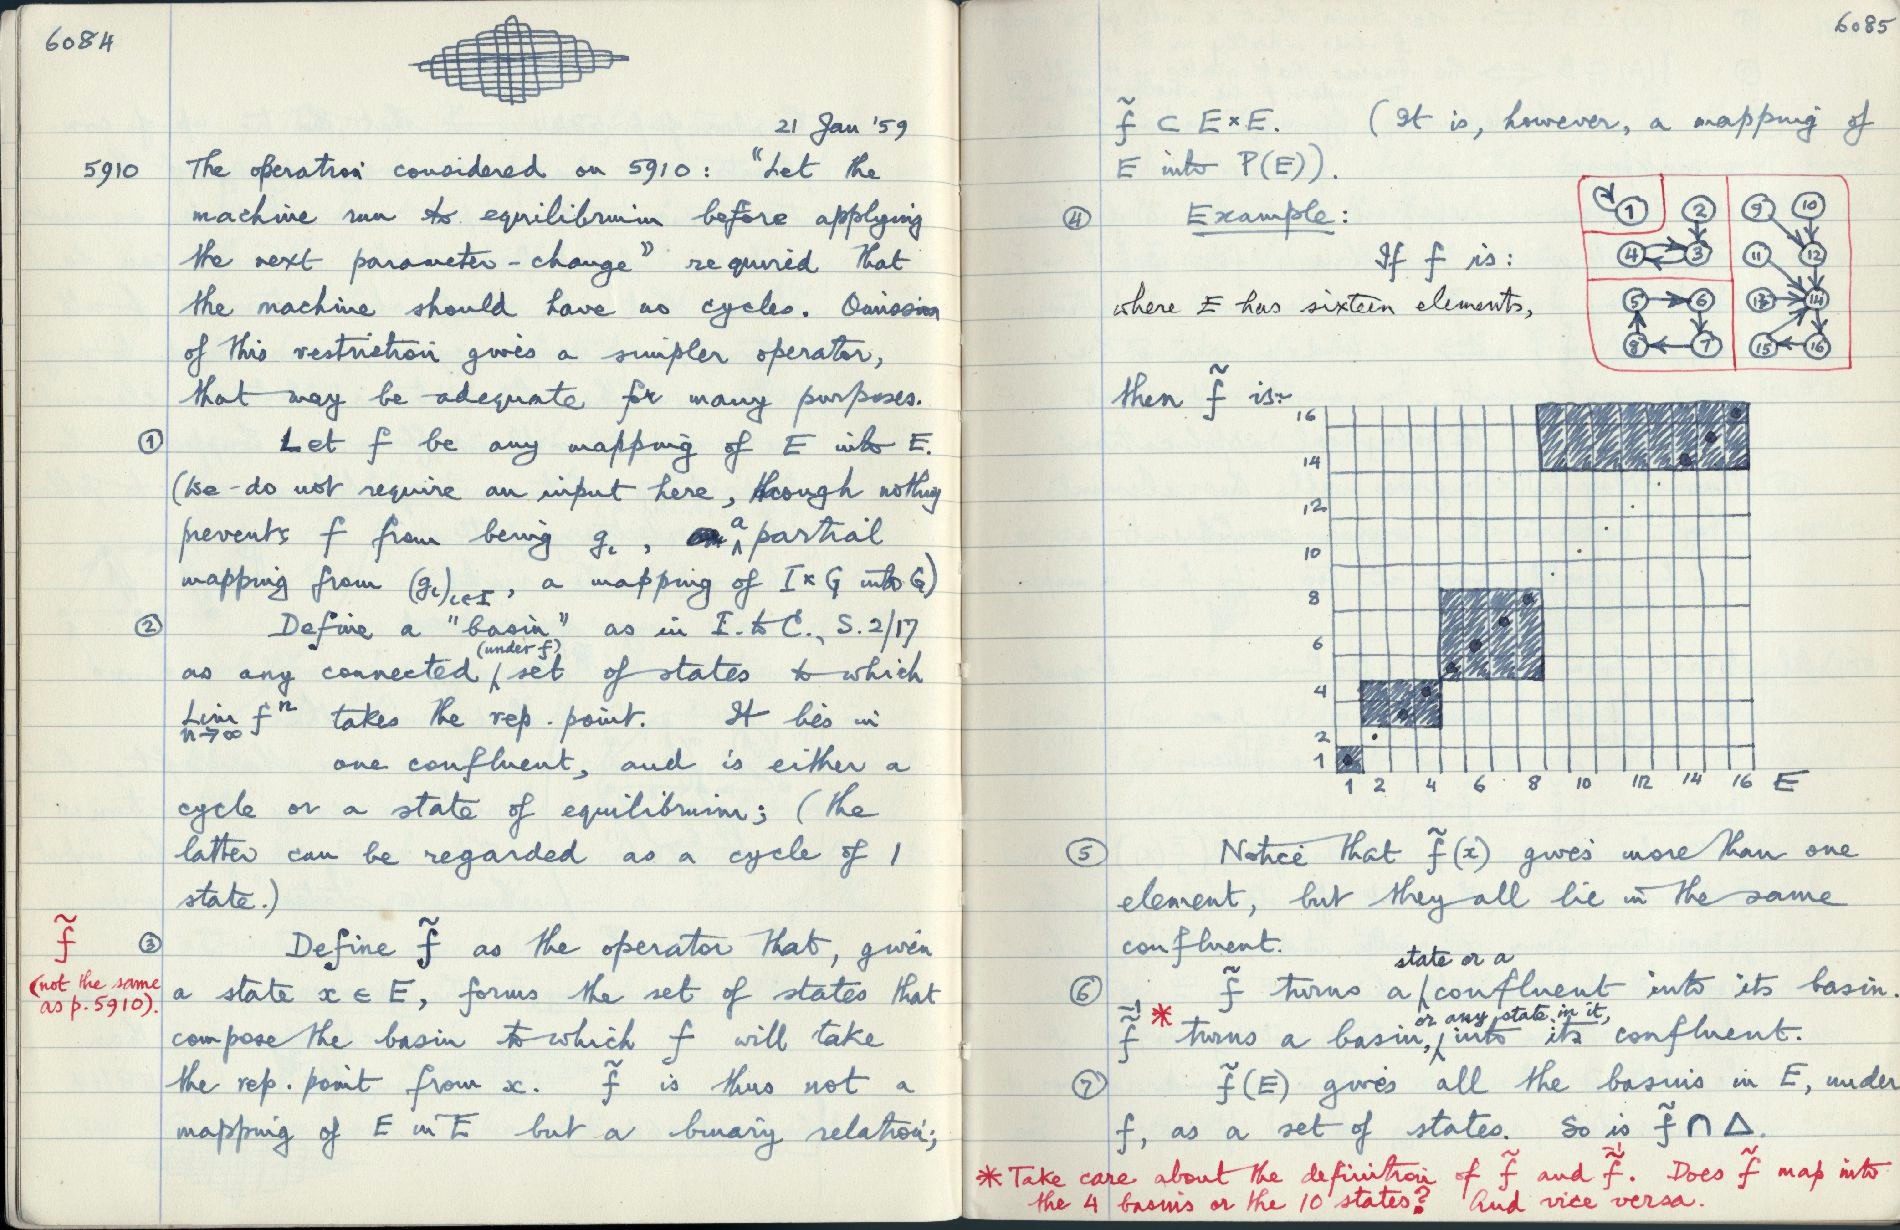 6084
21 Jan '59
5910 The operation considered on 5910: "Let the
machine run to equilibrium before applying
the next parameter-change" required that
the machine should have no cycles. Omission
of this restriction gives a simpler operator,
that may be adequate for many purposes.
① Let f be any mapping of E into E.
(We do not require an input here, though nothing
prevents f from being gᵢ, a partial
mapping from (gᵢ)ᵢ∈I, a mapping of I×G into G)
② Define a "basin" as in I. to C., S. 2/17
(under f)
as any connected set of states to which
Lim fⁿ takes the rep. point. It lies in
n→∞
one confluent, and is either a
cycle or a state of equilibrium; (the
latter can be regarded as a cycle of 1
state.)
f̃ ③ Define f̃ as the operator that, given
(not the same a state x ∈ E, forms the set of states that
as p. 5910). compose the basin to which f will take
the rep. point from x. f̃ is thus not a
mapping of E in E but a binary relation;
6085
f̃ ⊂ E×E. (It is, however, a mapping of
E into P(E)).
④ Example:
If f is:
where E has sixteen elements,
1 2 9 10
4 3 11 12
5 6 13 14
8 7 15 16
then f̃ is:
16
14
12
10
8
6
4
2
1
1 2 4 6 8 10 12 14 16 E
⑤ Notice that f̃(x) gives more than one
element, but they all lie in the same
confluent.
state or a
⑥ f̃ turns a confluent into its basin.
or any state in it,
f̃⁻¹ * turns a basin, into its confluent.
⑦ f̃(E) gives all the basins in E, under
f, as a set of states. So is f̃ ∩ Δ.
* Take care about the definition of f̃ and f̃⁻¹. Does f̃ map into
the 4 basins or the 10 states? And vice versa.